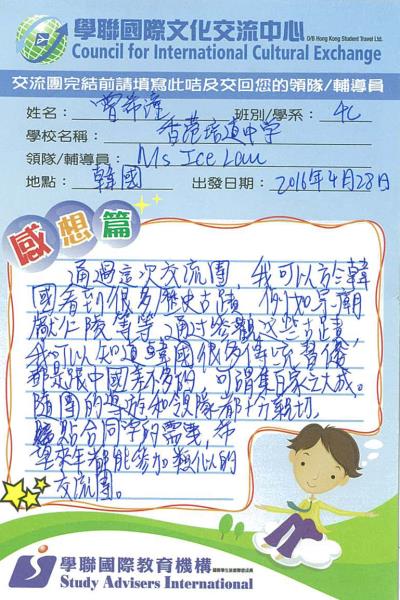 學聯國際文化交流中心 O/B Hong Kong Student Travel Ltd.
Council for International Cultural Exchange
交流團完結前請填寫此咭及交回您的領隊/輔導員
姓名： 班別/學系： 4C
學校名稱： 香港培道中學
領隊/輔導員： Ms Ice Lau
地點： 韓國 出發日期： 2016年4月28日
感想篇
通過這次交流團，我可以於韓
國看到很多歷史古蹟，例如
獻仁陵等等，通過參觀這些古蹟，
我可以知道韓國很多傳統習俗
都是跟中國差不多的，可謂集百家之大成。
隨團的導遊和領隊都十分親切，
點合同學的需要，希
望來年都能參加類似的
交流團。
學聯國際教育機構
Study Advisers International